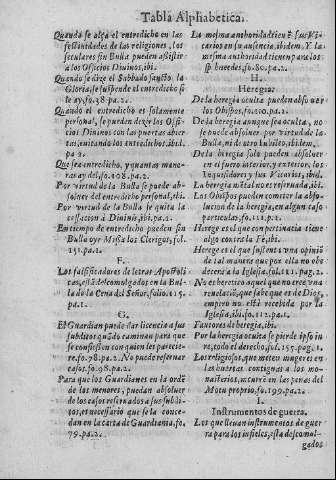 Tabla Alphabetica.
Quando se alça el entredicho en las
festiuidades de las religiones, los
seculares sin Bulla pueden assistir
a los Officios Diuinos, ibi.
Quando se dize el Sabbado sancto la
Gloria, se suspende el entredicho si
le ay, fo.38.pa.2.
Quando el entredicho es solamente
personal, se pueden dezir los Offi-
cios Diuinos con las puertas abier
tas, ibi.
pa.2.
Que sea entredicho, y quantas mane-
ras ay del. fo.108.pa.2.
Por virtud de la Bulla se puede ab-
soluer del entredicho personal, ibi.
Por virtud de la Bulla se quita la
cessacion à Diuinis, ibi.pa.2.
En tiempo de entredicho pueden sin
Bulla oyr Missa los Clerigos, fol.
151.pa.2.
F.
Los falsificadores de letras Apostoli
cas, està descomulgados en la Bul-
la de la Cena del Señor, folio.115.
pa.2.
G.
El Guardian puede dar licencia a sus
subditos quãdo caminan para que
se confiessen con quien les parecie-
re. fo.78.pa.2. No puede reseruar
casos. fo.98.pa.2.
Para que los Guardianes en la ordẽ
de los menores, puedan absoluer
de los casos reseruados a sus subdi-
tos, es necessario que se lo conce-
dan en la carta de Guardiania, fo.
79.pa.2.
La mesma authoridad tienẽ sus Vi-
carios en su ausencia, ibidem. Y la
mesma authoridad tienen para los
huespedes, fo.80.pa.2.
H.
Heregia.
De la heregia oculta pueden absoluer
los Obispos, fo.110.pa.2.
De la heregia aunque sea oculta, no
se puede absoluer por virtud de la
Bulla, ni de otro Iubileo, ibidem.
De la heregia solo pueden absoluer
en el fuero interior, y exterior, los
Inquisidores y sus Vicarios, ibid.
La heregia mental no es reseruada, ibi.
Los Obispos pueden cometer la abso-
lucion de la heregia, en algun caso
particular, fo.111.p.2.
Herege es el que con pertinacia tiene
algo contra la Fe, ibi.
Herege es el que sustenta vna opiniõ
de tal manera que por ella no obe
deceria a la Iglesia, fol.111. pag.2.
No es heretico aquel que no cree vna
reuelacion, que sabe que es de Dios,
empero no està recebida por la
Iglesia, ibi. fo.112.pa.1.
Fautores de heregia, ibi.
Por la heregia oculta se pierde ipso iu
re, todo el derecho, fol.157.pag.1.
Los religiosos, que meten mugeres en
las huertas contiguas a los mo-
nasterios, incurren en las penas del
Motu proprio, fo.199.pa.2.
I.
Instrumentos de guerra.
Los que lleuan instrumentos de guer
ra para los infieles, està descomul-
gados